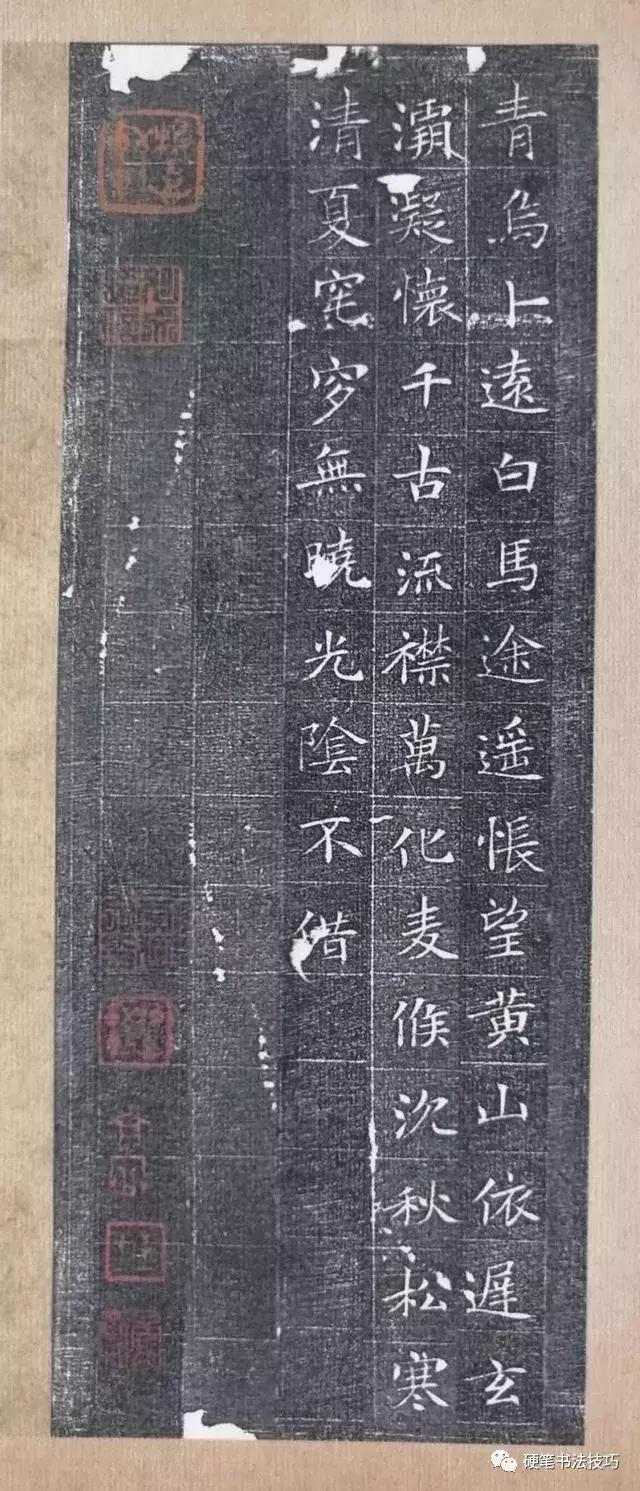 青烏卜遠白馬途遥悵望黄山依遲玄
灞凝懷千古流襟萬化麦候沈秋松寒
清夏窀穸無曉光陰不借
硬笔书法技巧